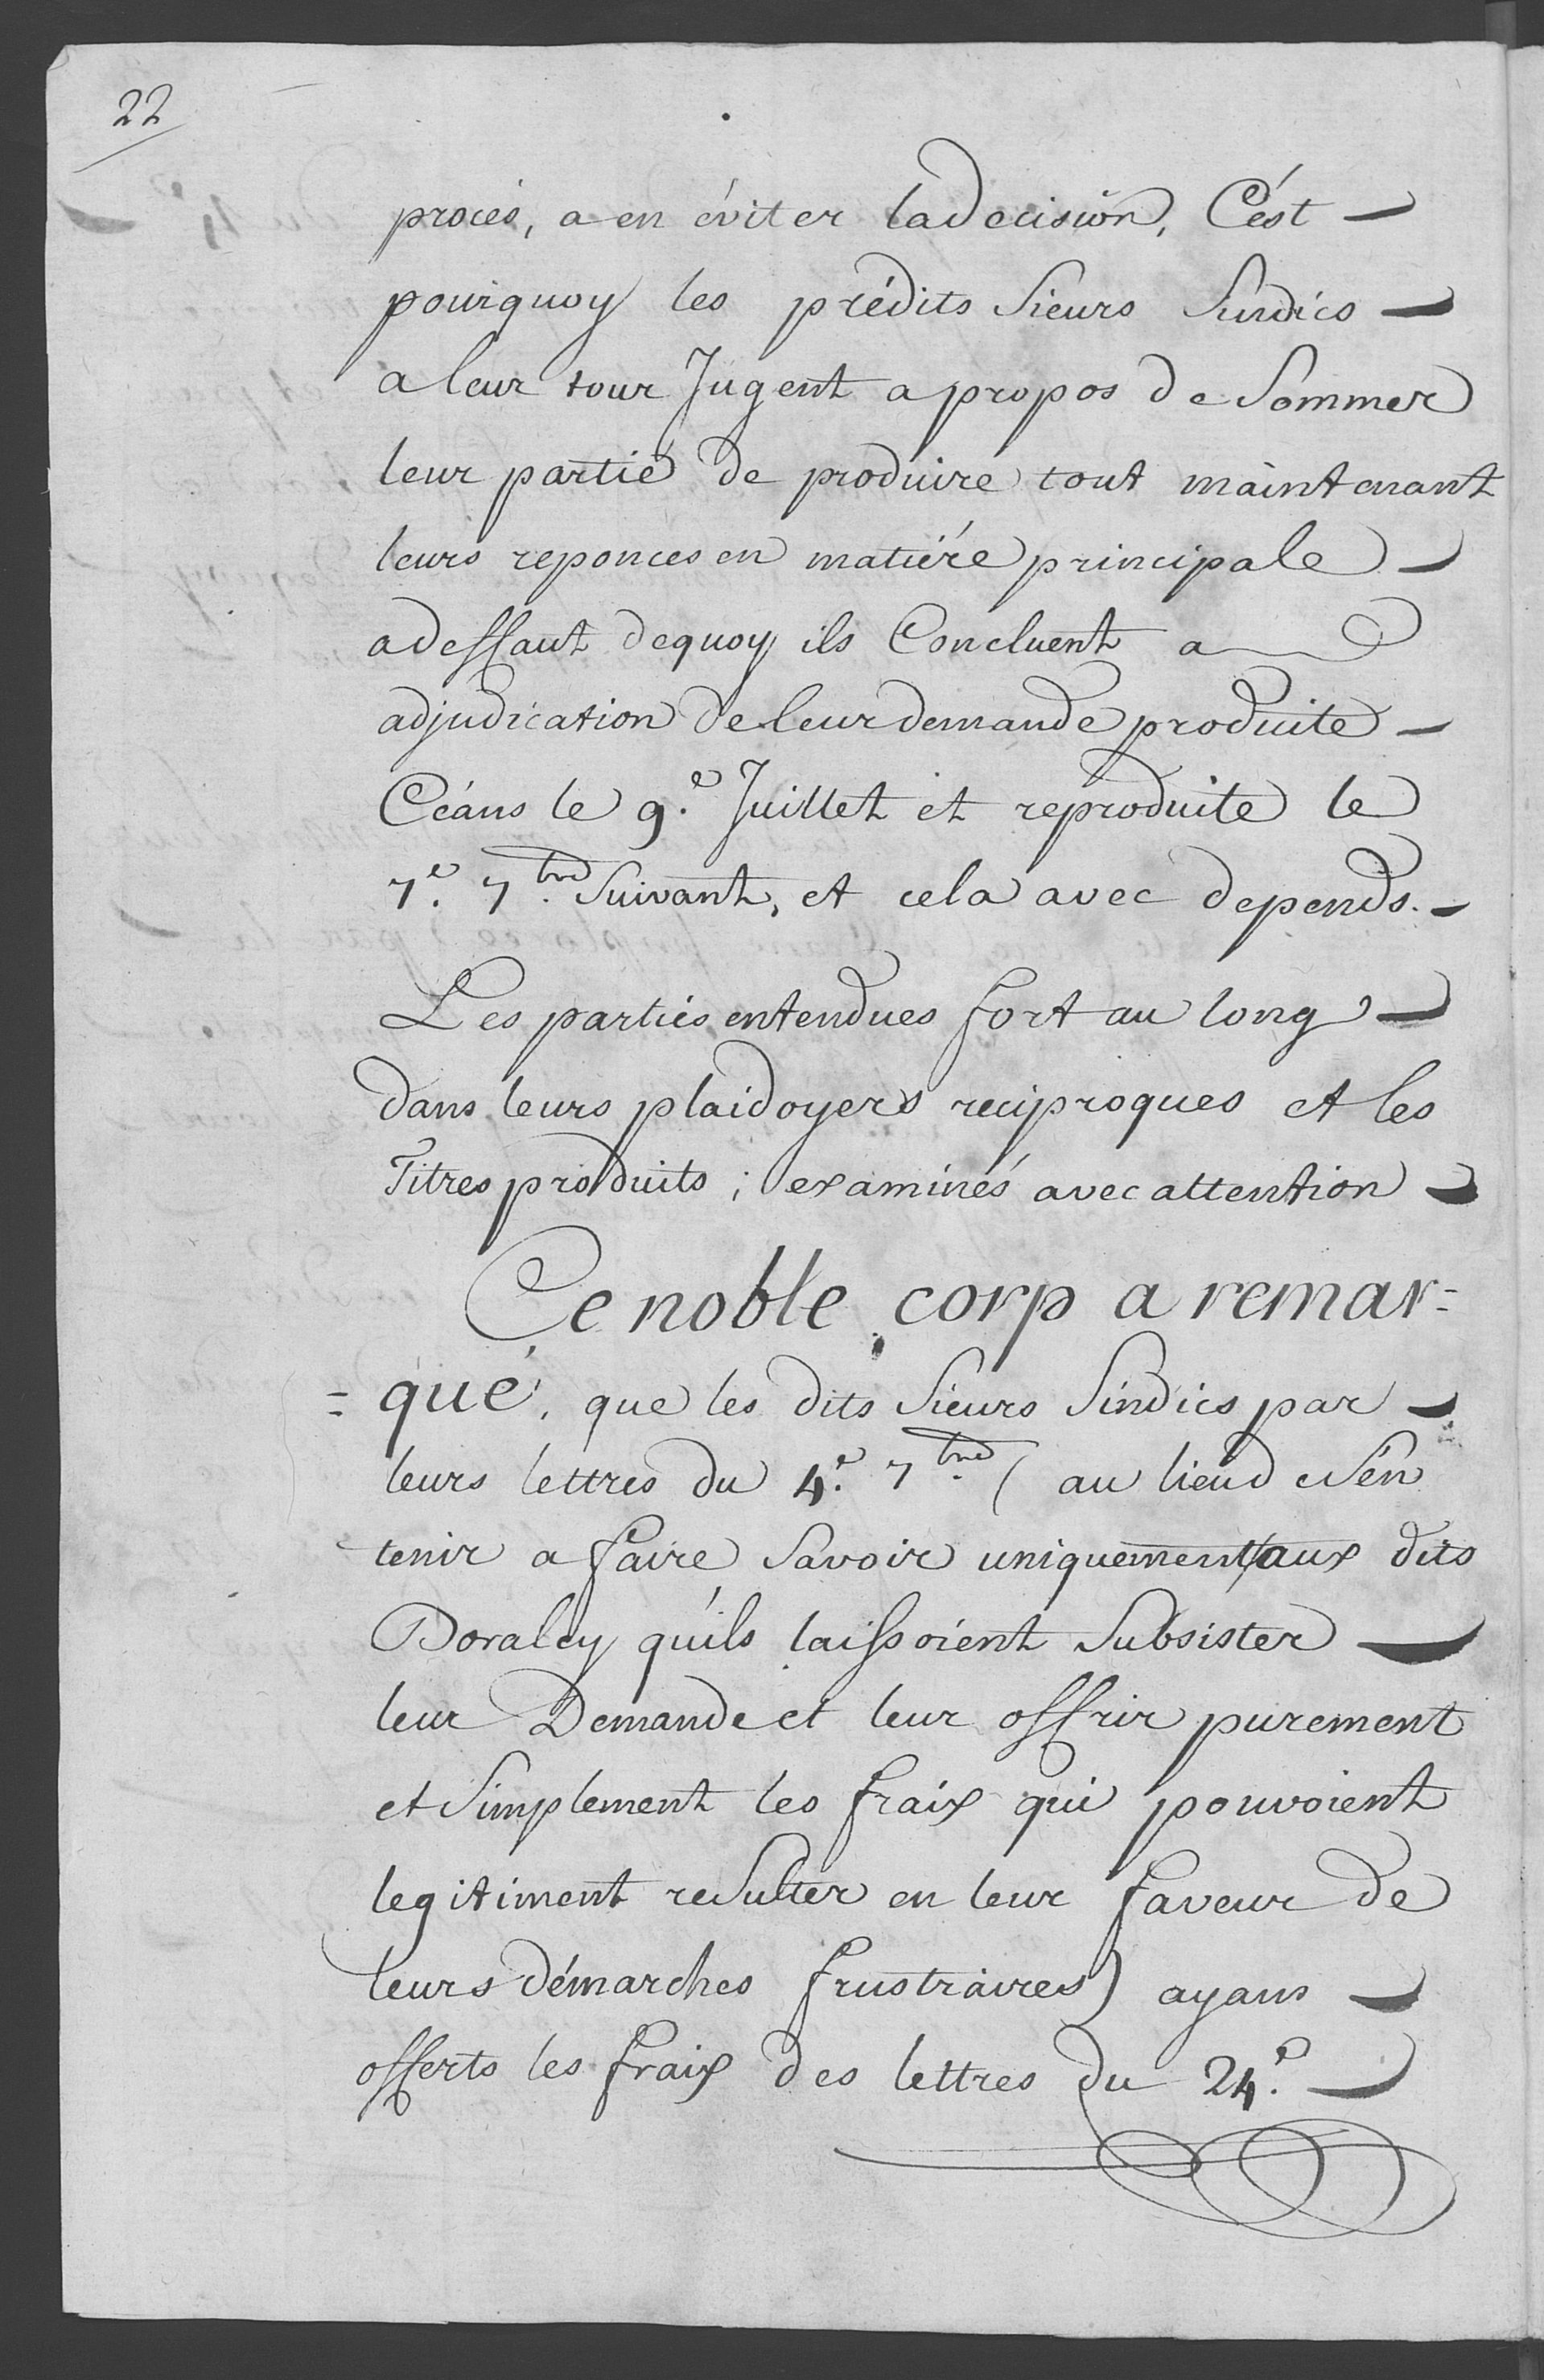 22
procès, a en éviter la decision, C'ést
pourquoy les prédits Sieurs Sindics
a leur tour Jugent a propos de Sommer
leur partié de produire tout maintenant
leurs reponces en matiére principale
a deffaut dequoy ils Concluent a
adjudication de leur demande produite
Céans le 9.e Juillet et reproduite le
7.e 7.bre Suivant, et cela avec depends.
Les partiés entendues fort au long
dans leurs plaidoyers reciproques et les
Titres produits; examinés avec attention
Ce noble corp a remar=
=qué, que les dits Sieurs Sindics par
leurs lettres du 4.e 7.bre (au lieud e S'en
tenir a faire Savoir uniquement aux dits
Boraley qu'ils laissoient Subsister
leur Demande et leur offrir purement
et Simplement les fraix qui pouvoient
legitiment resulter en leur faveur de
leurs démarches frustraires) ayans
offerts les fraix des lettres du 24.e